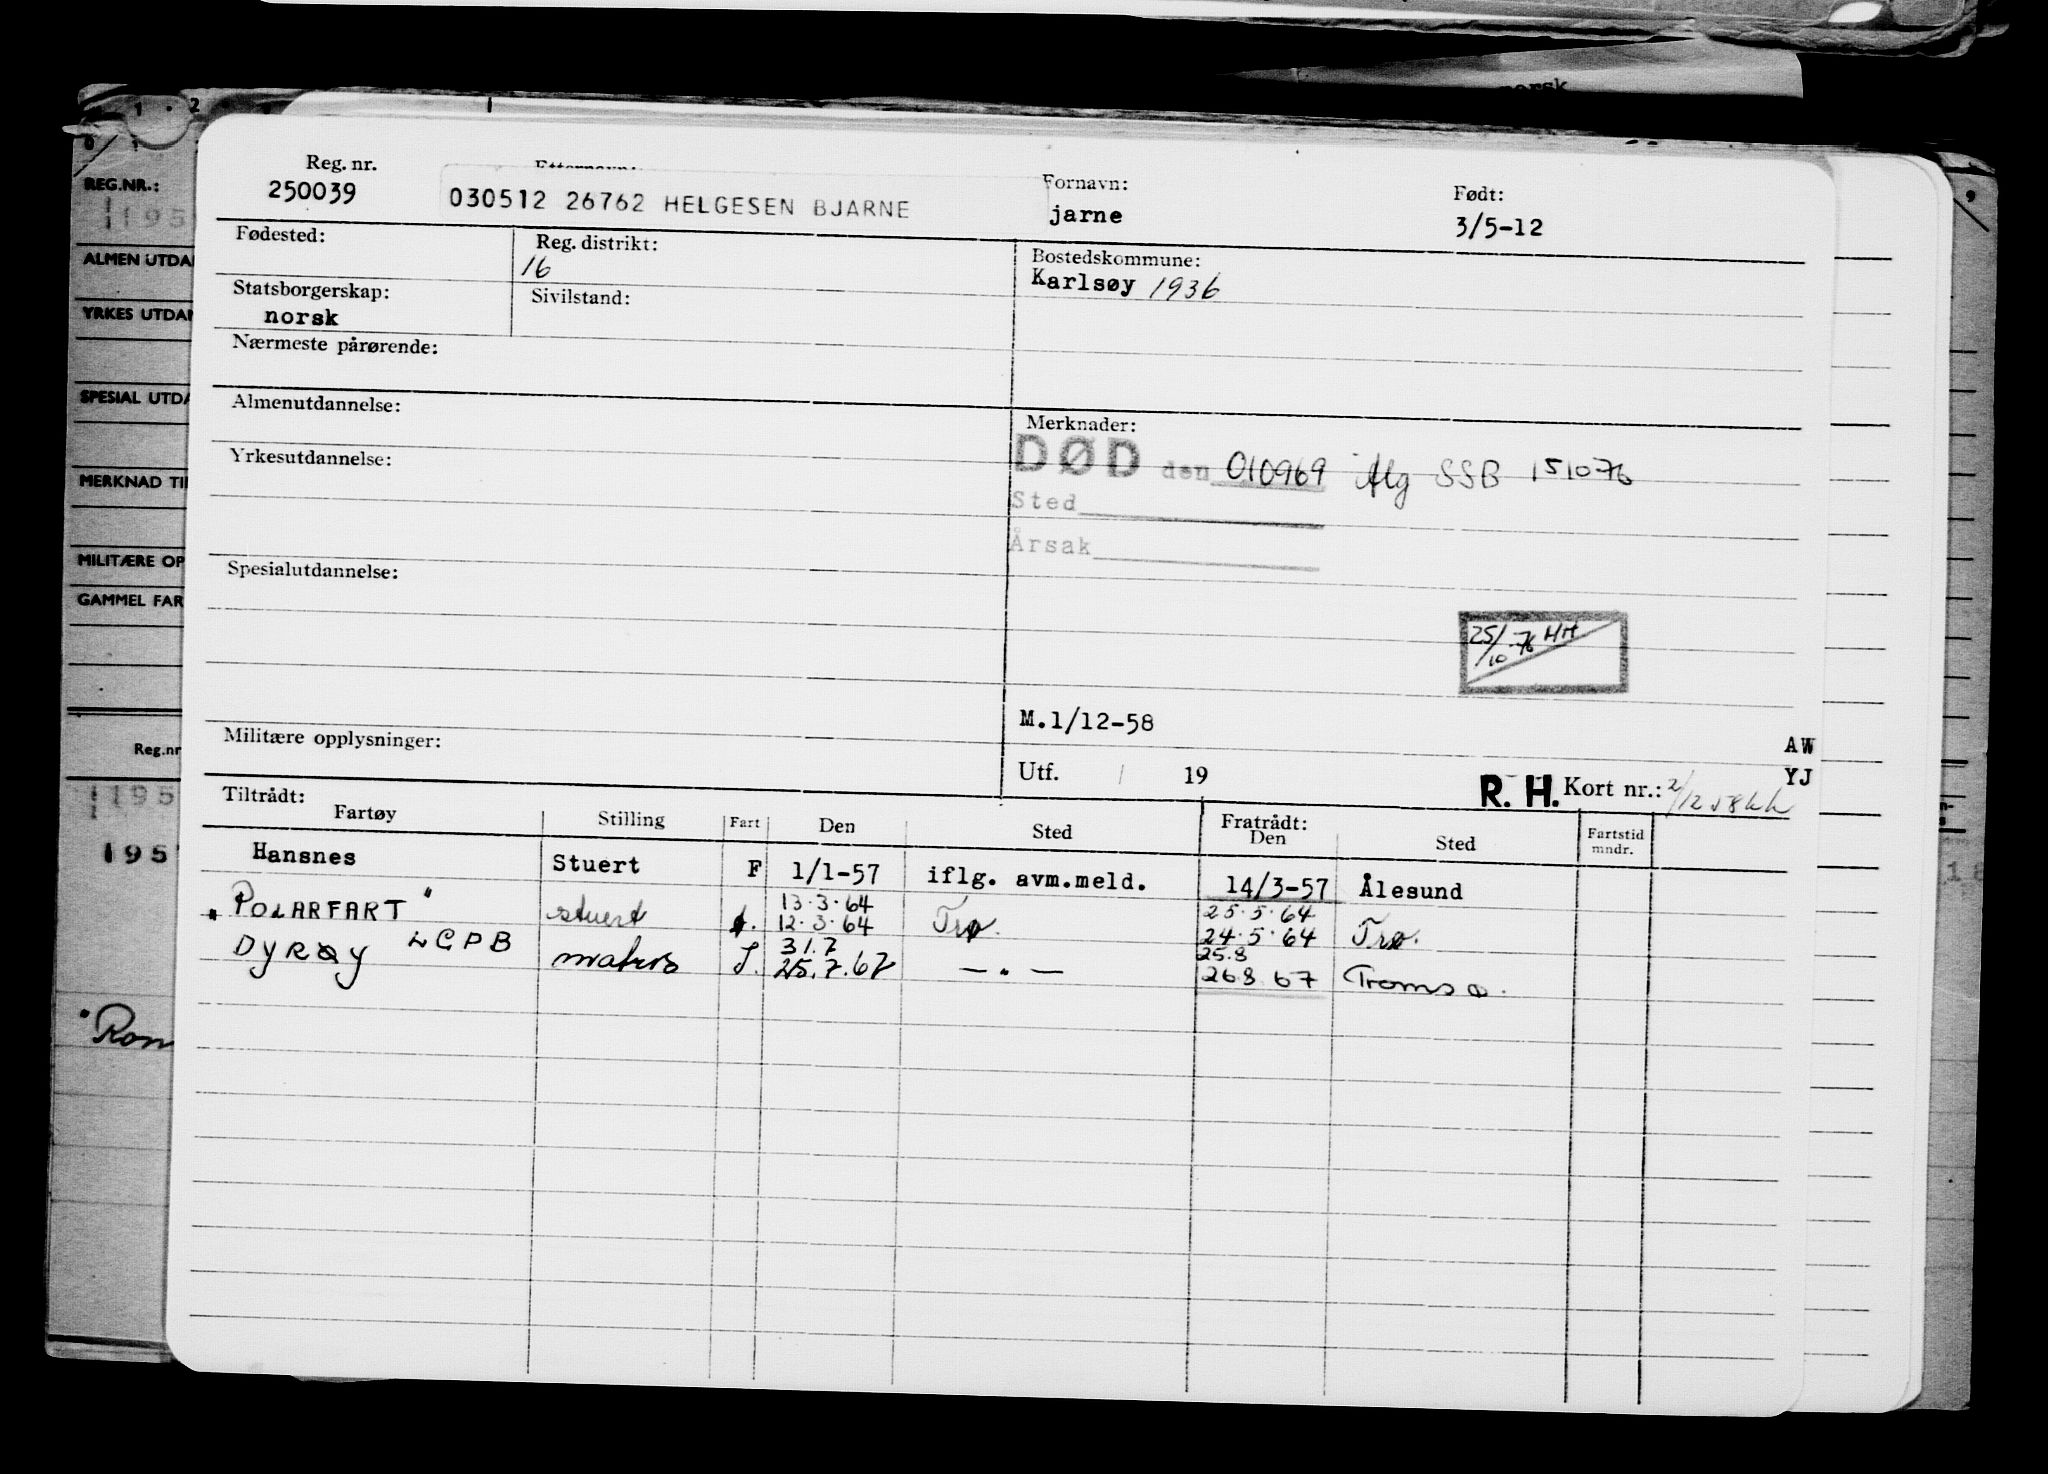 norsk
1 . 2
0 1
9
REG.NR.:
195
ALMEN UTDA
YRKES UTDA
SPESIAL UTDA
MERKNAD TI
MILITÆRE OP
GAMMEL FAR
Reg.nr
195
195
"Ron
18
Reg. nr. Etternavn: Fornavn: Født:
250039 030512 26762 HELGESEN BJARNE jarne 3/5-12
Fødested: Reg. distrikt: Bostedskommune:
16 Karlsøy 1936
Statsborgerskap: Sivilstand:
norsk
Nærmeste pårørende:
Almenutdannelse: Merknader:
DØD den 010969 flg SSB 151076
Yrkesutdannelse:
Sted
Årsak
Spesialutdannelse:
25/10-76 HH
M.1/12-58
Militære opplysninger: AW
Utf. / 19 R. H. Kort nr.: 2/12 58 kk YJ
Tiltrådt: Fratrådt:
Fartøy Stilling Fart Den Sted Den Sted Fartstid mndr.
Hansnes Stuert F 1/1-57 iflg. avm.meld. 14/3-57 Ålesund
13.3.64 25.5.64
"POLARFART" stuert f. 12.3.64 Trø. 24.5.64 Trø.
31.7 25.8
DYRØY LCPB matros S. 25.7.67 — " — 26.8.67 Tromsø.